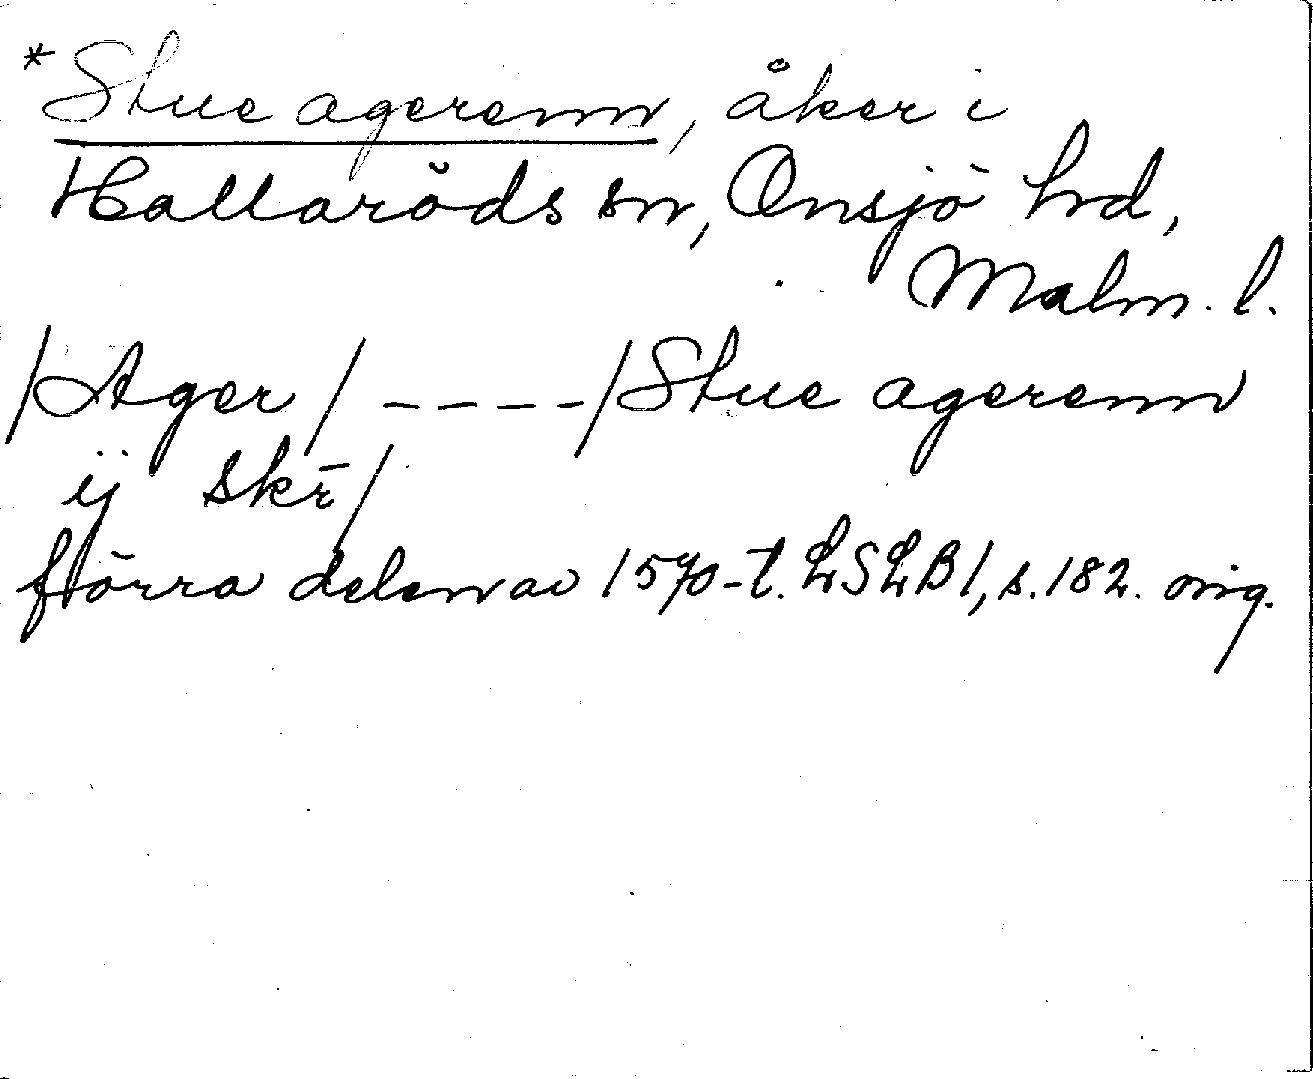 *Stue agerenn, åker i
Hallaröds sn, Onsjö hd,
Malm. l.
/Ager/ ----/Stue agerenn
ij skr̄/
förra delen av 1570-t. LSLB1, s. 182. orig.